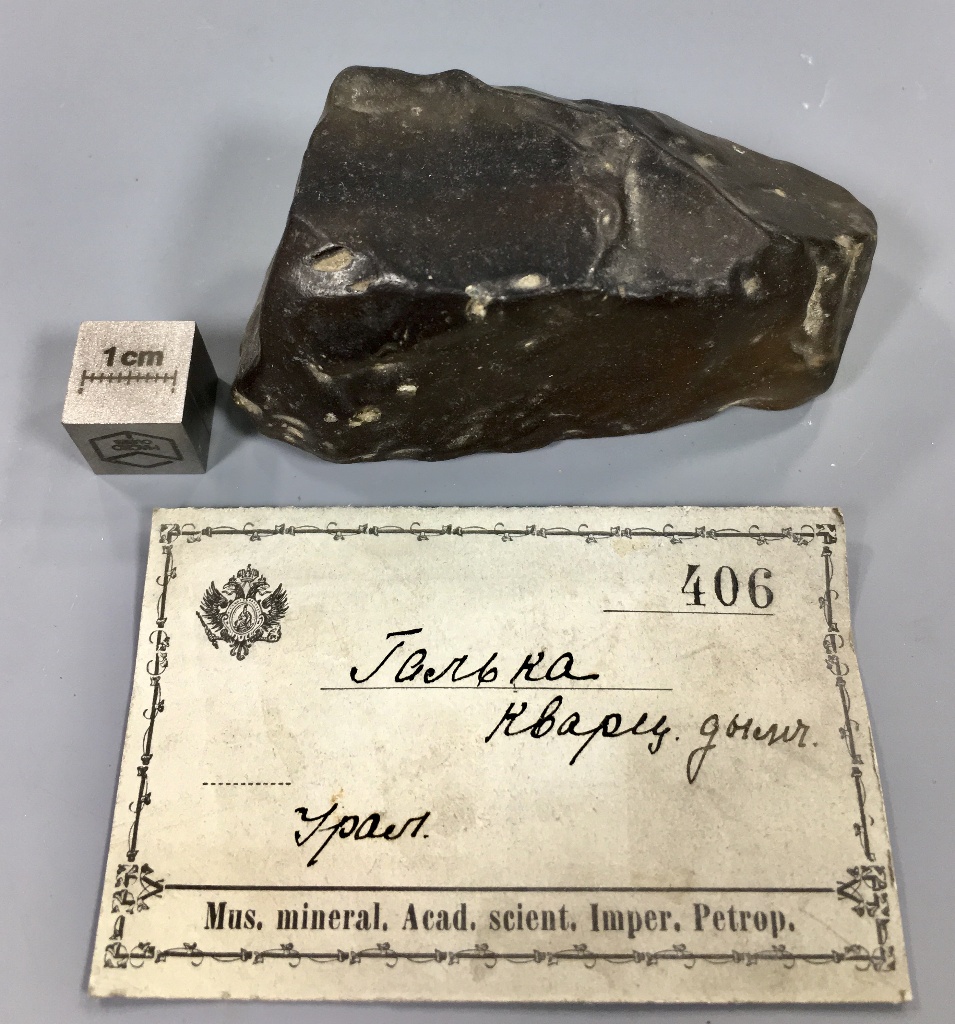 1 cm
406
Галька
кварц. дымч.
Урал.
Mus. mineral. Acad. scient. Imper. Petrop.